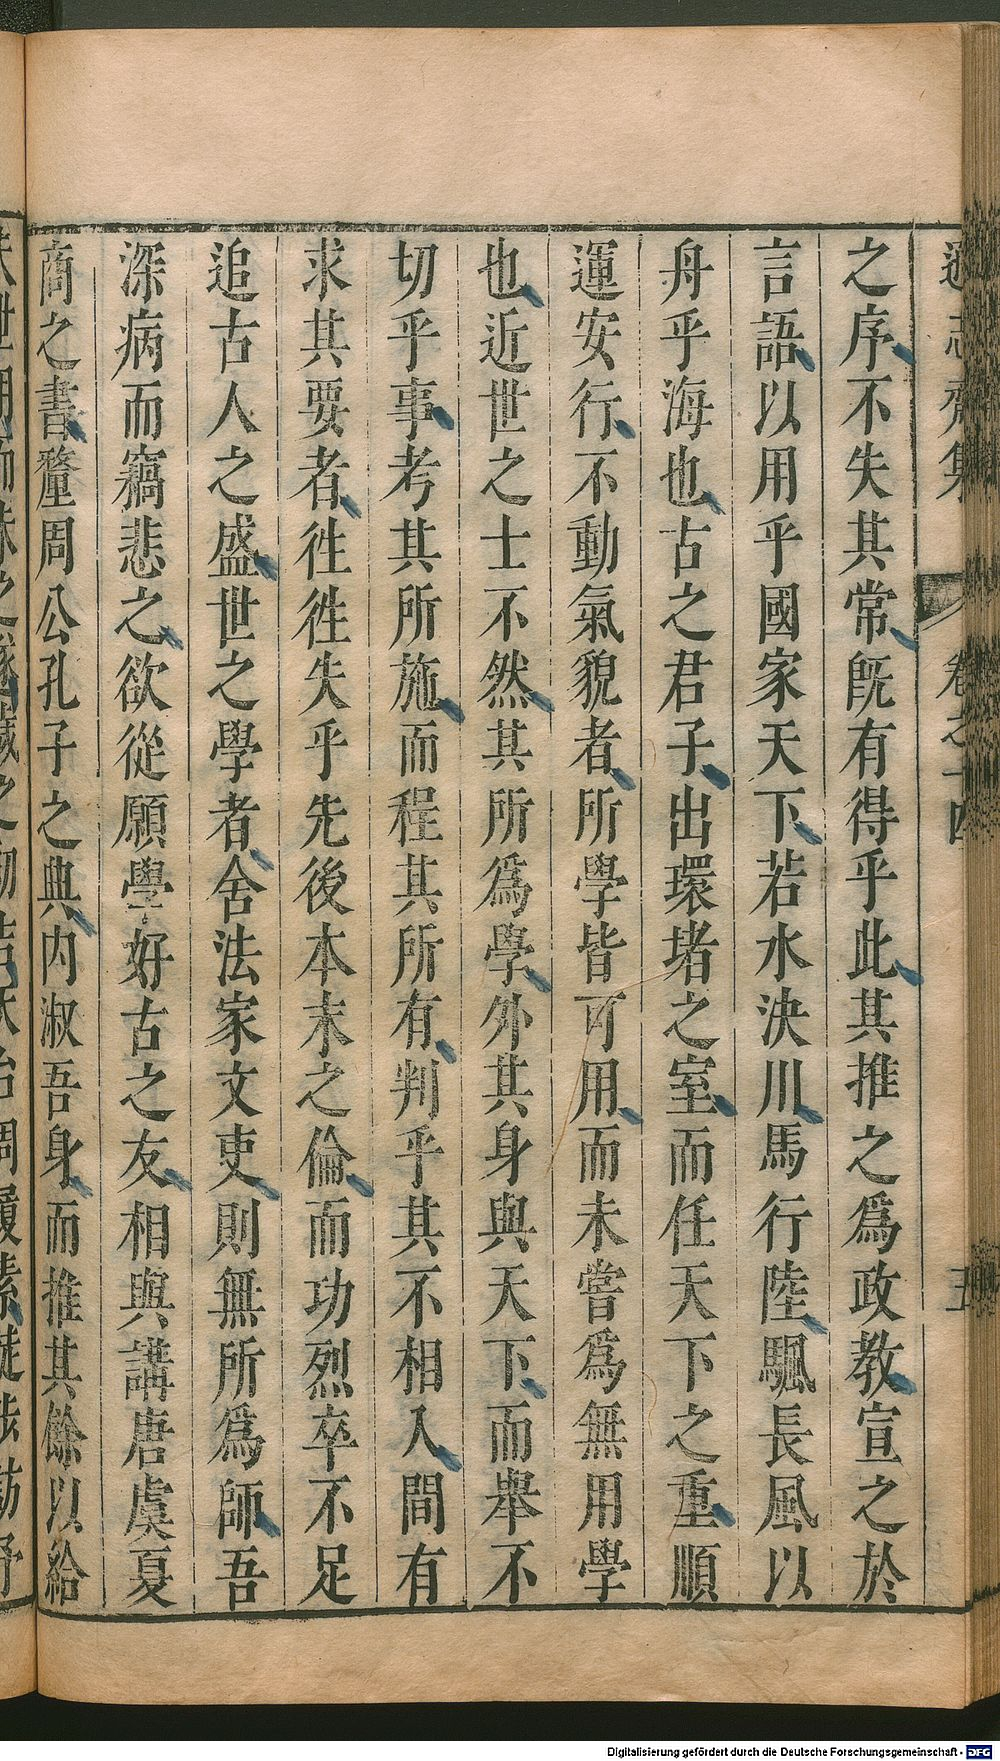 之序不失其常旣有得乎此其推之爲政教宣之於
言語以用乎國家天下若水決川馬行陸颿長風以
舟乎海也古之君子出環堵之室而任天下之重順
運安行不動氣貌者所學皆可用而未嘗爲無用學
也近世之士不然其所爲學外其身與天下而舉不
切乎事考其所施而程其所有判乎其不相入間有
求其要者徃徃失乎先後本末之倫而功烈卒不足
追古人之盛世之學者舍法家文吏則無所爲師吾
深病而竊悲之欲從願學好古之友相與講唐虞夏
商之書釐周公孔子之典内淑吾身而推其餘以給
卷之十四
五
Digitalisierung gefördert durch die Deutsche Forschungsgemeinschaft - DFG